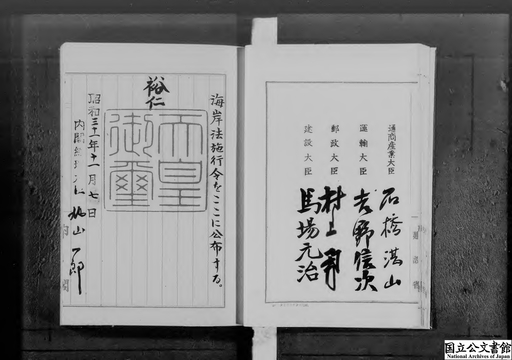 通商産業大臣 石橋湛山
運輸大臣 吉野信次
郵政大臣 村上勇
建設大臣 馬場元治
海岸法施行令をここに公布する。
裕仁
天皇御璽
昭和三十一年十一月七日
内閣総理大臣 鳩山一郎
国立公文書館
National Archives of Japan